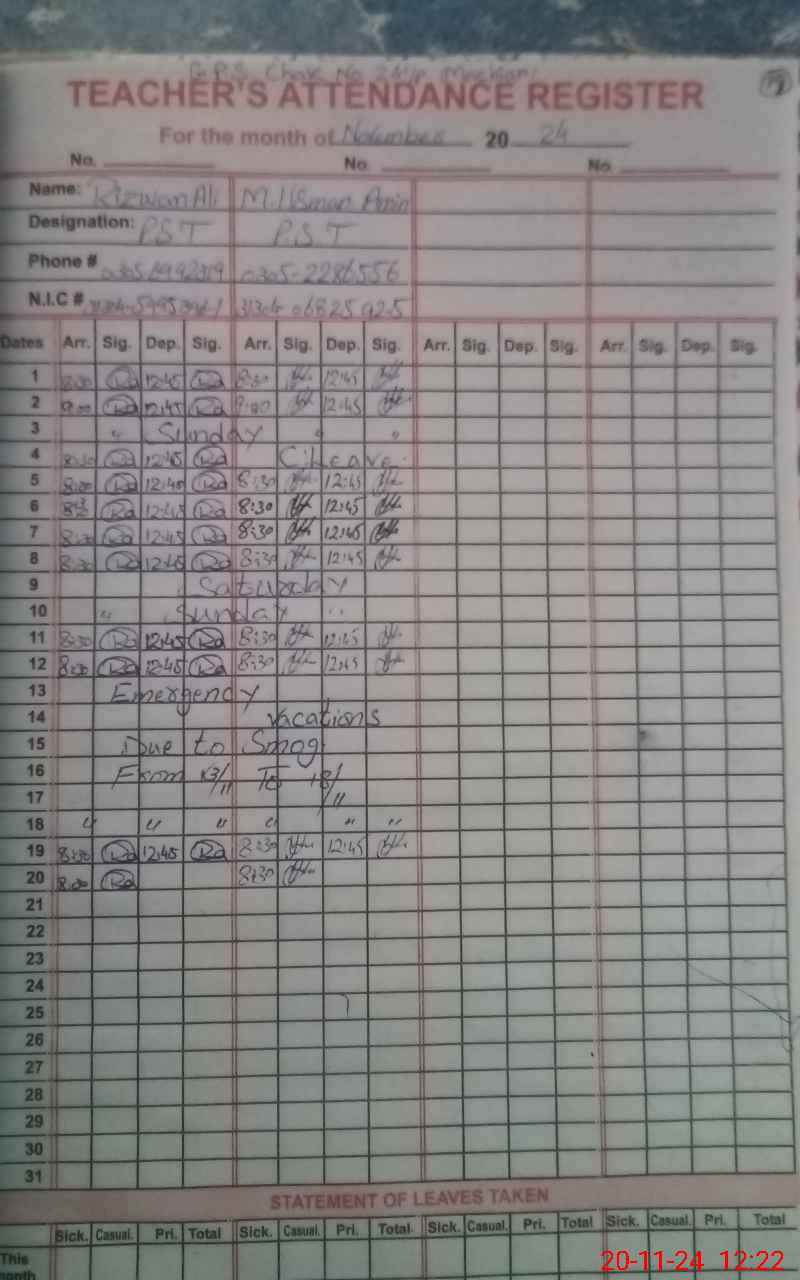 G.P.S. Chak No
TEACHER'S ATTENDANCE REGISTER
For the month of November 2024
No. No. No.
Name: Rizwan Ali M. Usman Amin
Designation: P.S T P.S T
Phone # 0305-2286556
N.I.C #
Dates Arr. Sig. Dep. Sig. Arr. Sig. Dep. Sig. Arr. Sig. Dep. Sig. Arr. Sig. Dep. Sig.
1 12:45 8:30 12:45
2 9:00 12:45 9:00 12:45
3 " Sunday " "
4 8:30 12:45 C.Leave.
5 12:45 8:30 12:45
6 12:45 8:30 12:45
7 8:30 12:45 8:30 12:45
8 8:30 12:45 8:30 12:45
9 Saturday
10 " Sunday "
11 8:30 12:45 8:30 12:45
12 8:30 12:45 8:30 12:45
13 Emergency
14 vacations
15 Due to Smog
16 From 13/11 To 18/11
17
18 " " " " " "
19 8:30 12:45 8:30 12:45
20 8:30 8:30
21
22
23
24
25
26
27
28
29
30
31
STATEMENT OF LEAVES TAKEN
Sick. Casual. Pri. Total Sick. Casual. Pri. Total. Sick. Casual. Pri. Total Sick. Casual. Pri. Total
This
month
20-11-24 12:22